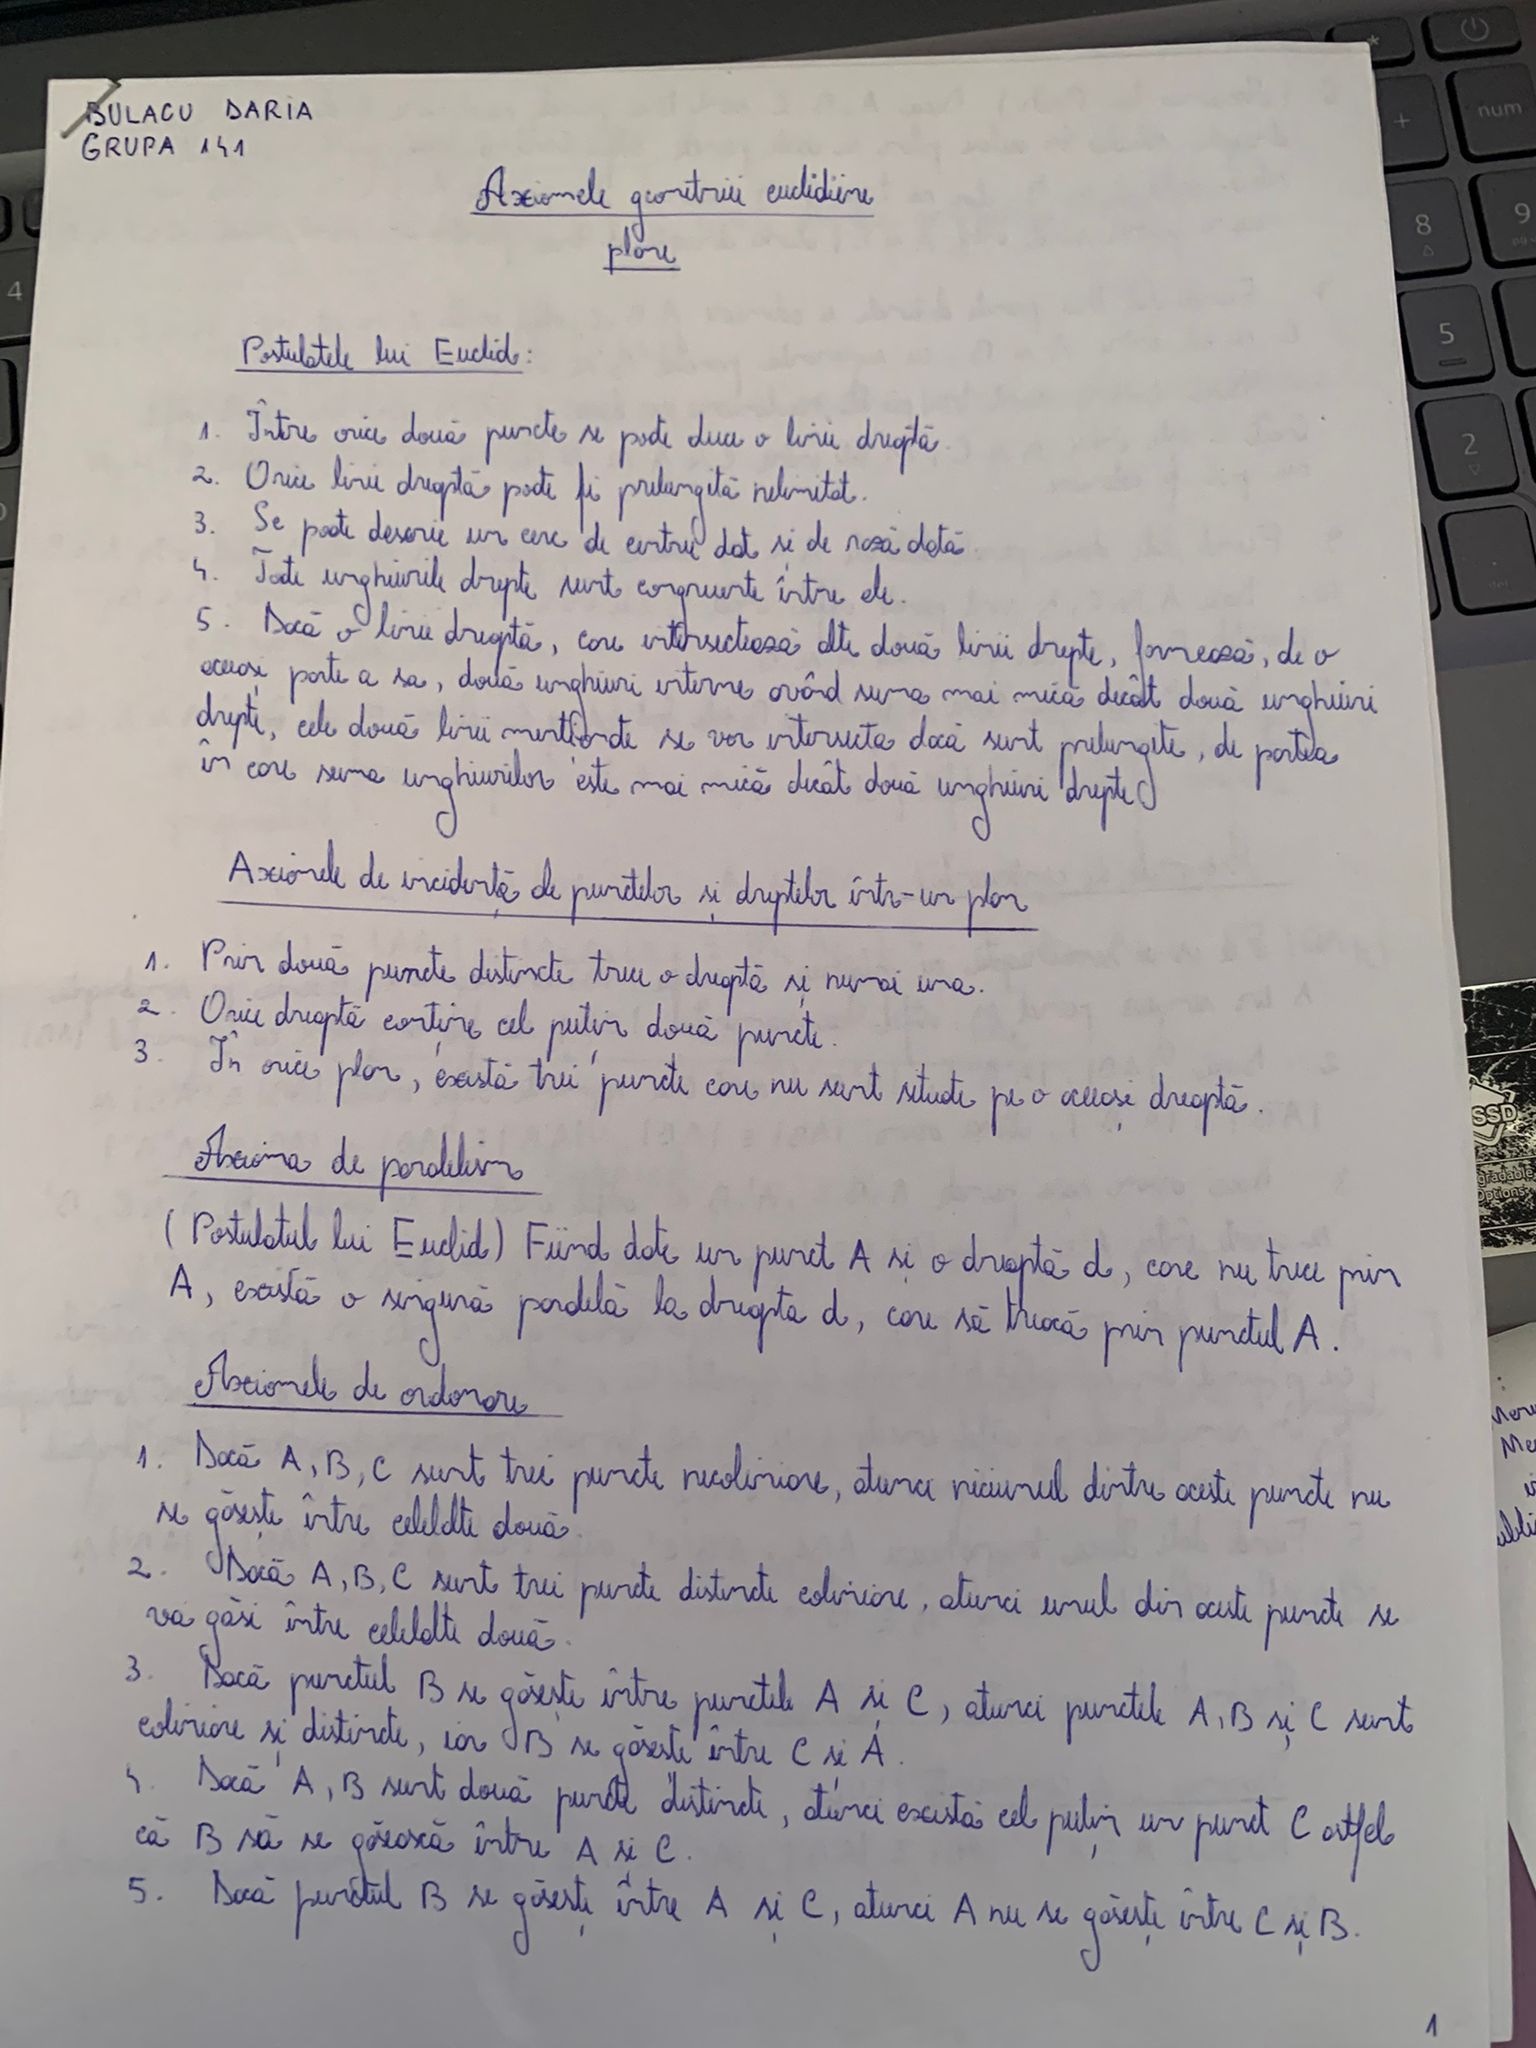 BULACU DARIA
GRUPA 141
Axiomele geometriei euclidiene
plane
Postulatele lui Euclid:
1. Între orice două puncte se poate duce o linie dreaptă.
2. Orice linie dreaptă poate fi prelungită nelimitat.
3. Se poate descrie un cerc de centru dat și de rază dată.
4. Toate unghiurile drepte sunt congruente între ele.
5. Dacă o linie dreaptă, care intersectează alte două linii drepte, formează, de o
aceeași parte a sa, două unghiuri interne având suma mai mică decât două unghiuri
drepte, cele două linii menționate se vor intersecta dacă sunt prelungite, de partea
în care suma unghiurilor este mai mică decât două unghiuri drepte.
Axiomele de incidență ale punctelor și dreptelor într-un plan
1. Prin două puncte distincte trece o dreaptă și numai una.
2. Orice dreaptă conține cel puțin două puncte.
3. În orice plan, există trei puncte care nu sunt situate pe o aceeași dreaptă.
Axioma de paralelism
(Postulatul lui Euclid) Fiind date un punct A și o dreaptă d, care nu trece prin
A, există o singură paralelă la dreapta d, care să treacă prin punctul A.
Axiomele de ordonare
1. Dacă A, B, C sunt trei puncte necoliniare, atunci niciunul dintre aceste puncte nu
se găsește între celelalte două.
2. Dacă A, B, C sunt trei puncte distincte coliniare, atunci unul din aceste puncte se
va găsi între celelalte două.
3. Dacă punctul B se găsește între punctele A și C, atunci punctele A, B și C sunt
coliniare și distincte, iar B se găsește între C și A.
4. Dacă A, B sunt două puncte distincte, atunci există cel puțin un punct C astfel
că B să se găsească între A și C.
5. Dacă punctul B se găsește între A și C, atunci A nu se găsește între C și B.
1
*
+
num
8
9
4
5
2
.
del
SSD